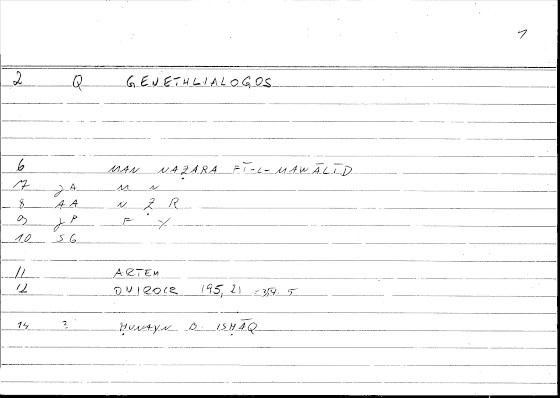 1
2 Q GENETHLIALOGOS
6 MAN NAẒARA FĪ-L-MAWĀLĪD
7 JA M N
8 AA N Ẓ R
9 JP F Y
10 SG
11 ARTEM
12 ONIROCR 195, 21 = 359. 5
14 ? ḤUNAYN B. ISḤĀQ